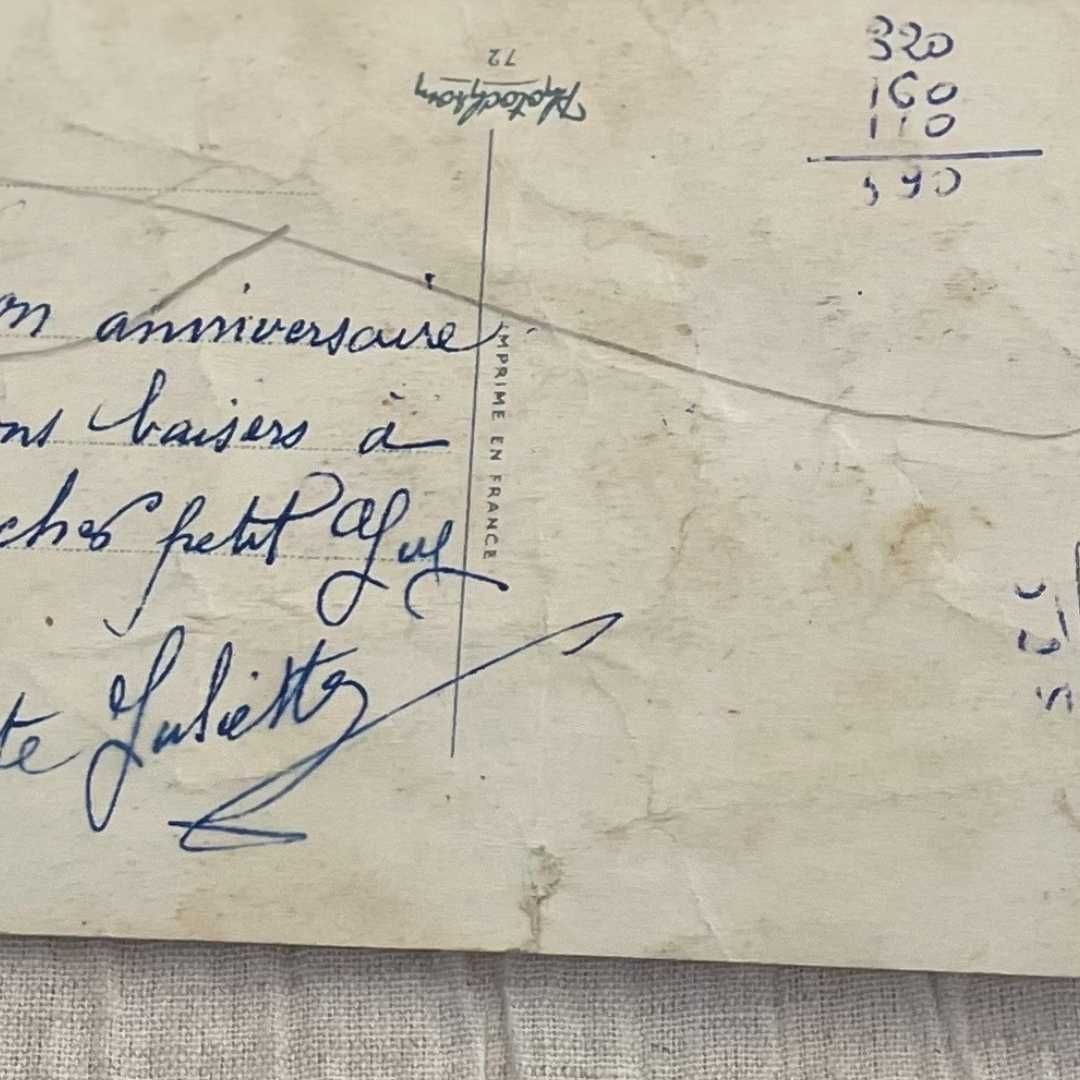 72
Photochrom
320
160
110
590
on anniversaire
ons baisers à
cher petit Guy
te Juliette
IMPRIME EN FRANCE